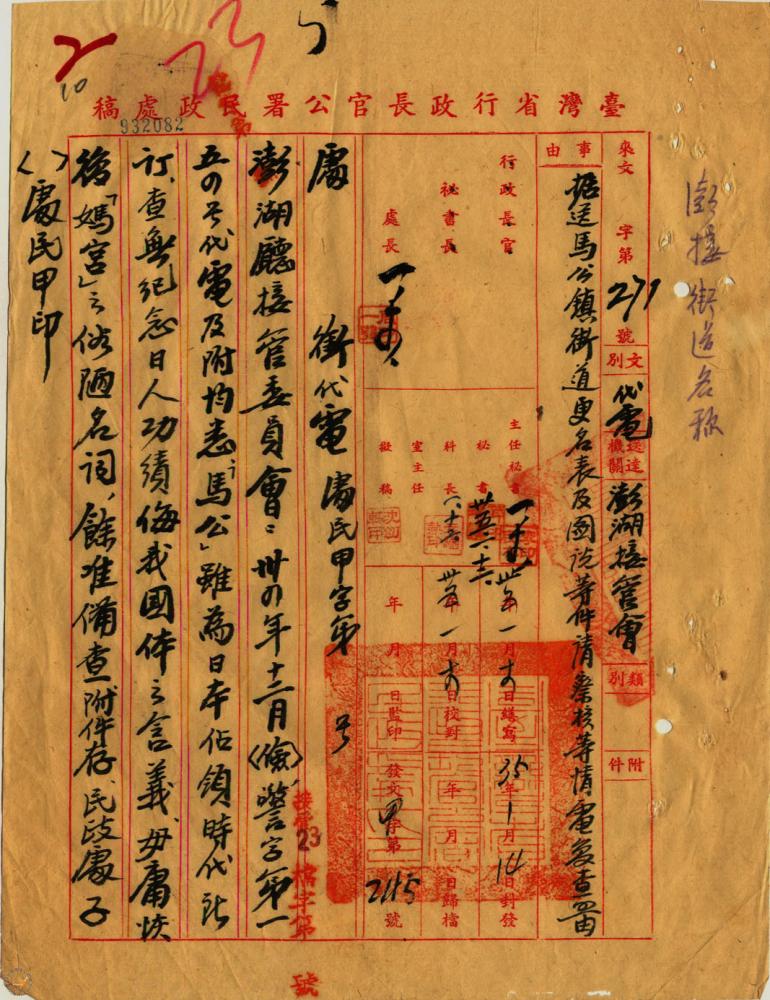 臺灣省行政長官公署民政處稿
932082
23
10
澎接街道名称
來文 字第 271 號
文別 代電
送達機關 澎湖接管會
類別
附件
事由
據送馬公鎮街道更名表及圖說等件請察核等情電復查照由
行政長官
秘書長
處長
主任秘書
秘書
科長
室主任
擬稿
卅五年一月 日繕寫
卅五年一月 日校對
年 月 日監印
35年1月14日封發
年 月 日歸檔
發文 甲字第 2115 號
檔字第 號
23
處 銜代電 處民甲字第 号
澎湖廳接管委員會：卅四年十二月(儉)警字第一
五四号代電及附均悉「馬公」雖為日本佔領時代所
订，查無紀念日人功績侮我國体之含義，毋庸恢
復「媽宮」之俗陋名詞，餘准備查附件存、民政處子
（）處民甲印